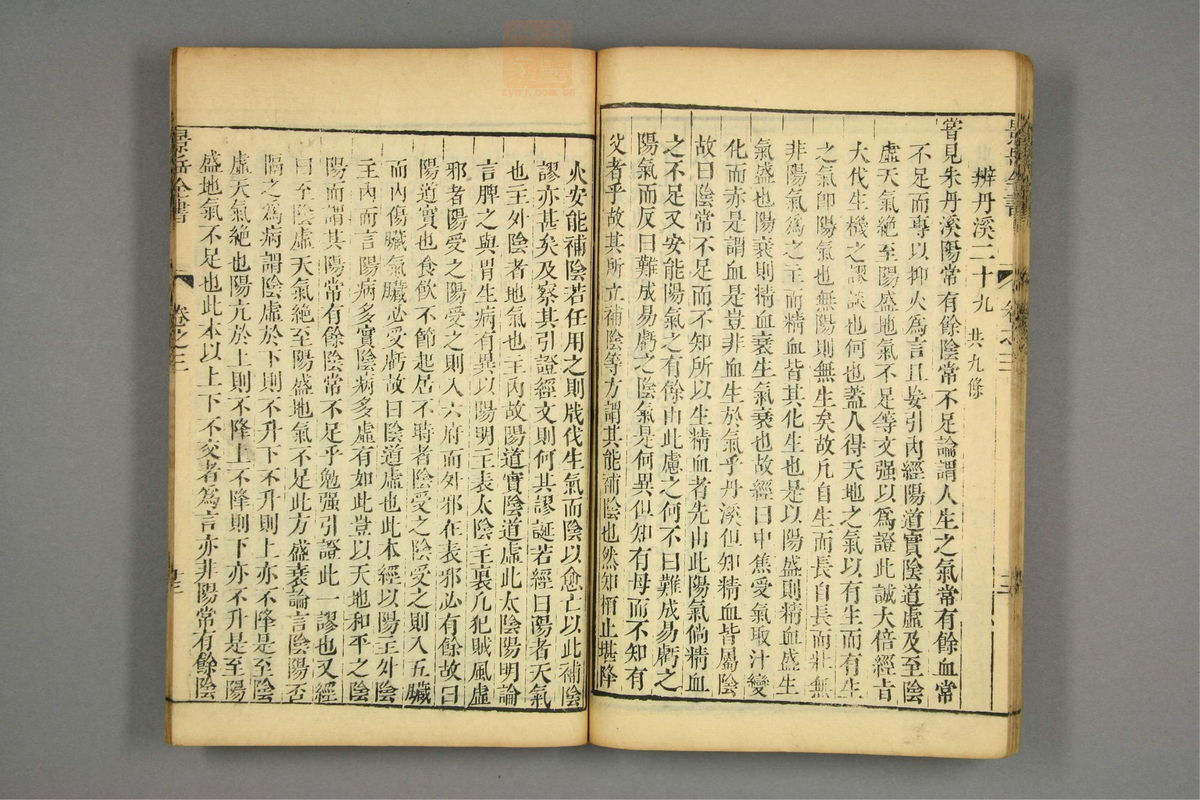 辨丹溪二十九 共九條
嘗見朱丹溪陽常有餘陰常不足論謂人生之氣常有餘血常
不足而專以抑火為言且妄引內經陽道實陰道虛及至陰
虛天氣絕至陽盛地氣不足等文强以為證此誠大倍經旨
大伐生機之謬談也何也蓋人得天地之氣以有生而有生
之氣卽陽氣也無陽則無生矣故凡自生而長自長而壯無
非陽氣為之主而精血皆其化生也是以陽盛則精血盛生
氣盛也陽衰則精血衰生氣衰也故經曰中焦受氣取汁變
化而赤是謂血是豈非血生於氣乎丹溪但知精血皆屬陰
故曰陰常不足而不知所以生精血者先由此陽氣倘精血
之不足又安能陽氣之有餘由此慮之何不曰難成易虧之
陽氣而反曰難成易虧之陰氣是何異但知有母而不知有
父者乎故其所立補陰等方謂其能補陰也然知栢止堪降
火安能補陰若任用之則戕伐生氣而陰以愈亡以此補陰
謬亦甚矣及察其引證經文則何其謬誕若經曰陽者天氣
也主外陰者地氣也主內故陽道實陰道虛此太陰陽明論
言脾之與胃生病有異以陽明主表太陰主裏凡犯賊風虛
邪者陽受之陽受之則入六府而外邪在表邪必有餘故曰
陽道實也食飲不節起居不時者陰受之陰受之則入五臟
而內傷臟氣臟必受虧故曰陰道虛也此本經以陽主外陰
主內而言陽病多實陰病多虛有如此豈以天地和平之陰
陽而謂其陽常有餘陰常不足乎勉强引證此一謬也又經
曰至陰虛天氣絕至陽盛地氣不足此方盛衰論言陰陽否
隔之為病謂陰虛於下則不升下不升則上亦不降是至陰
虛天氣絕也陽亢於上則不降上不降則下亦不升是至陽
盛地氣不足也此本以上下不交者為言亦非陽常有餘陰
景岳全書
卷之三